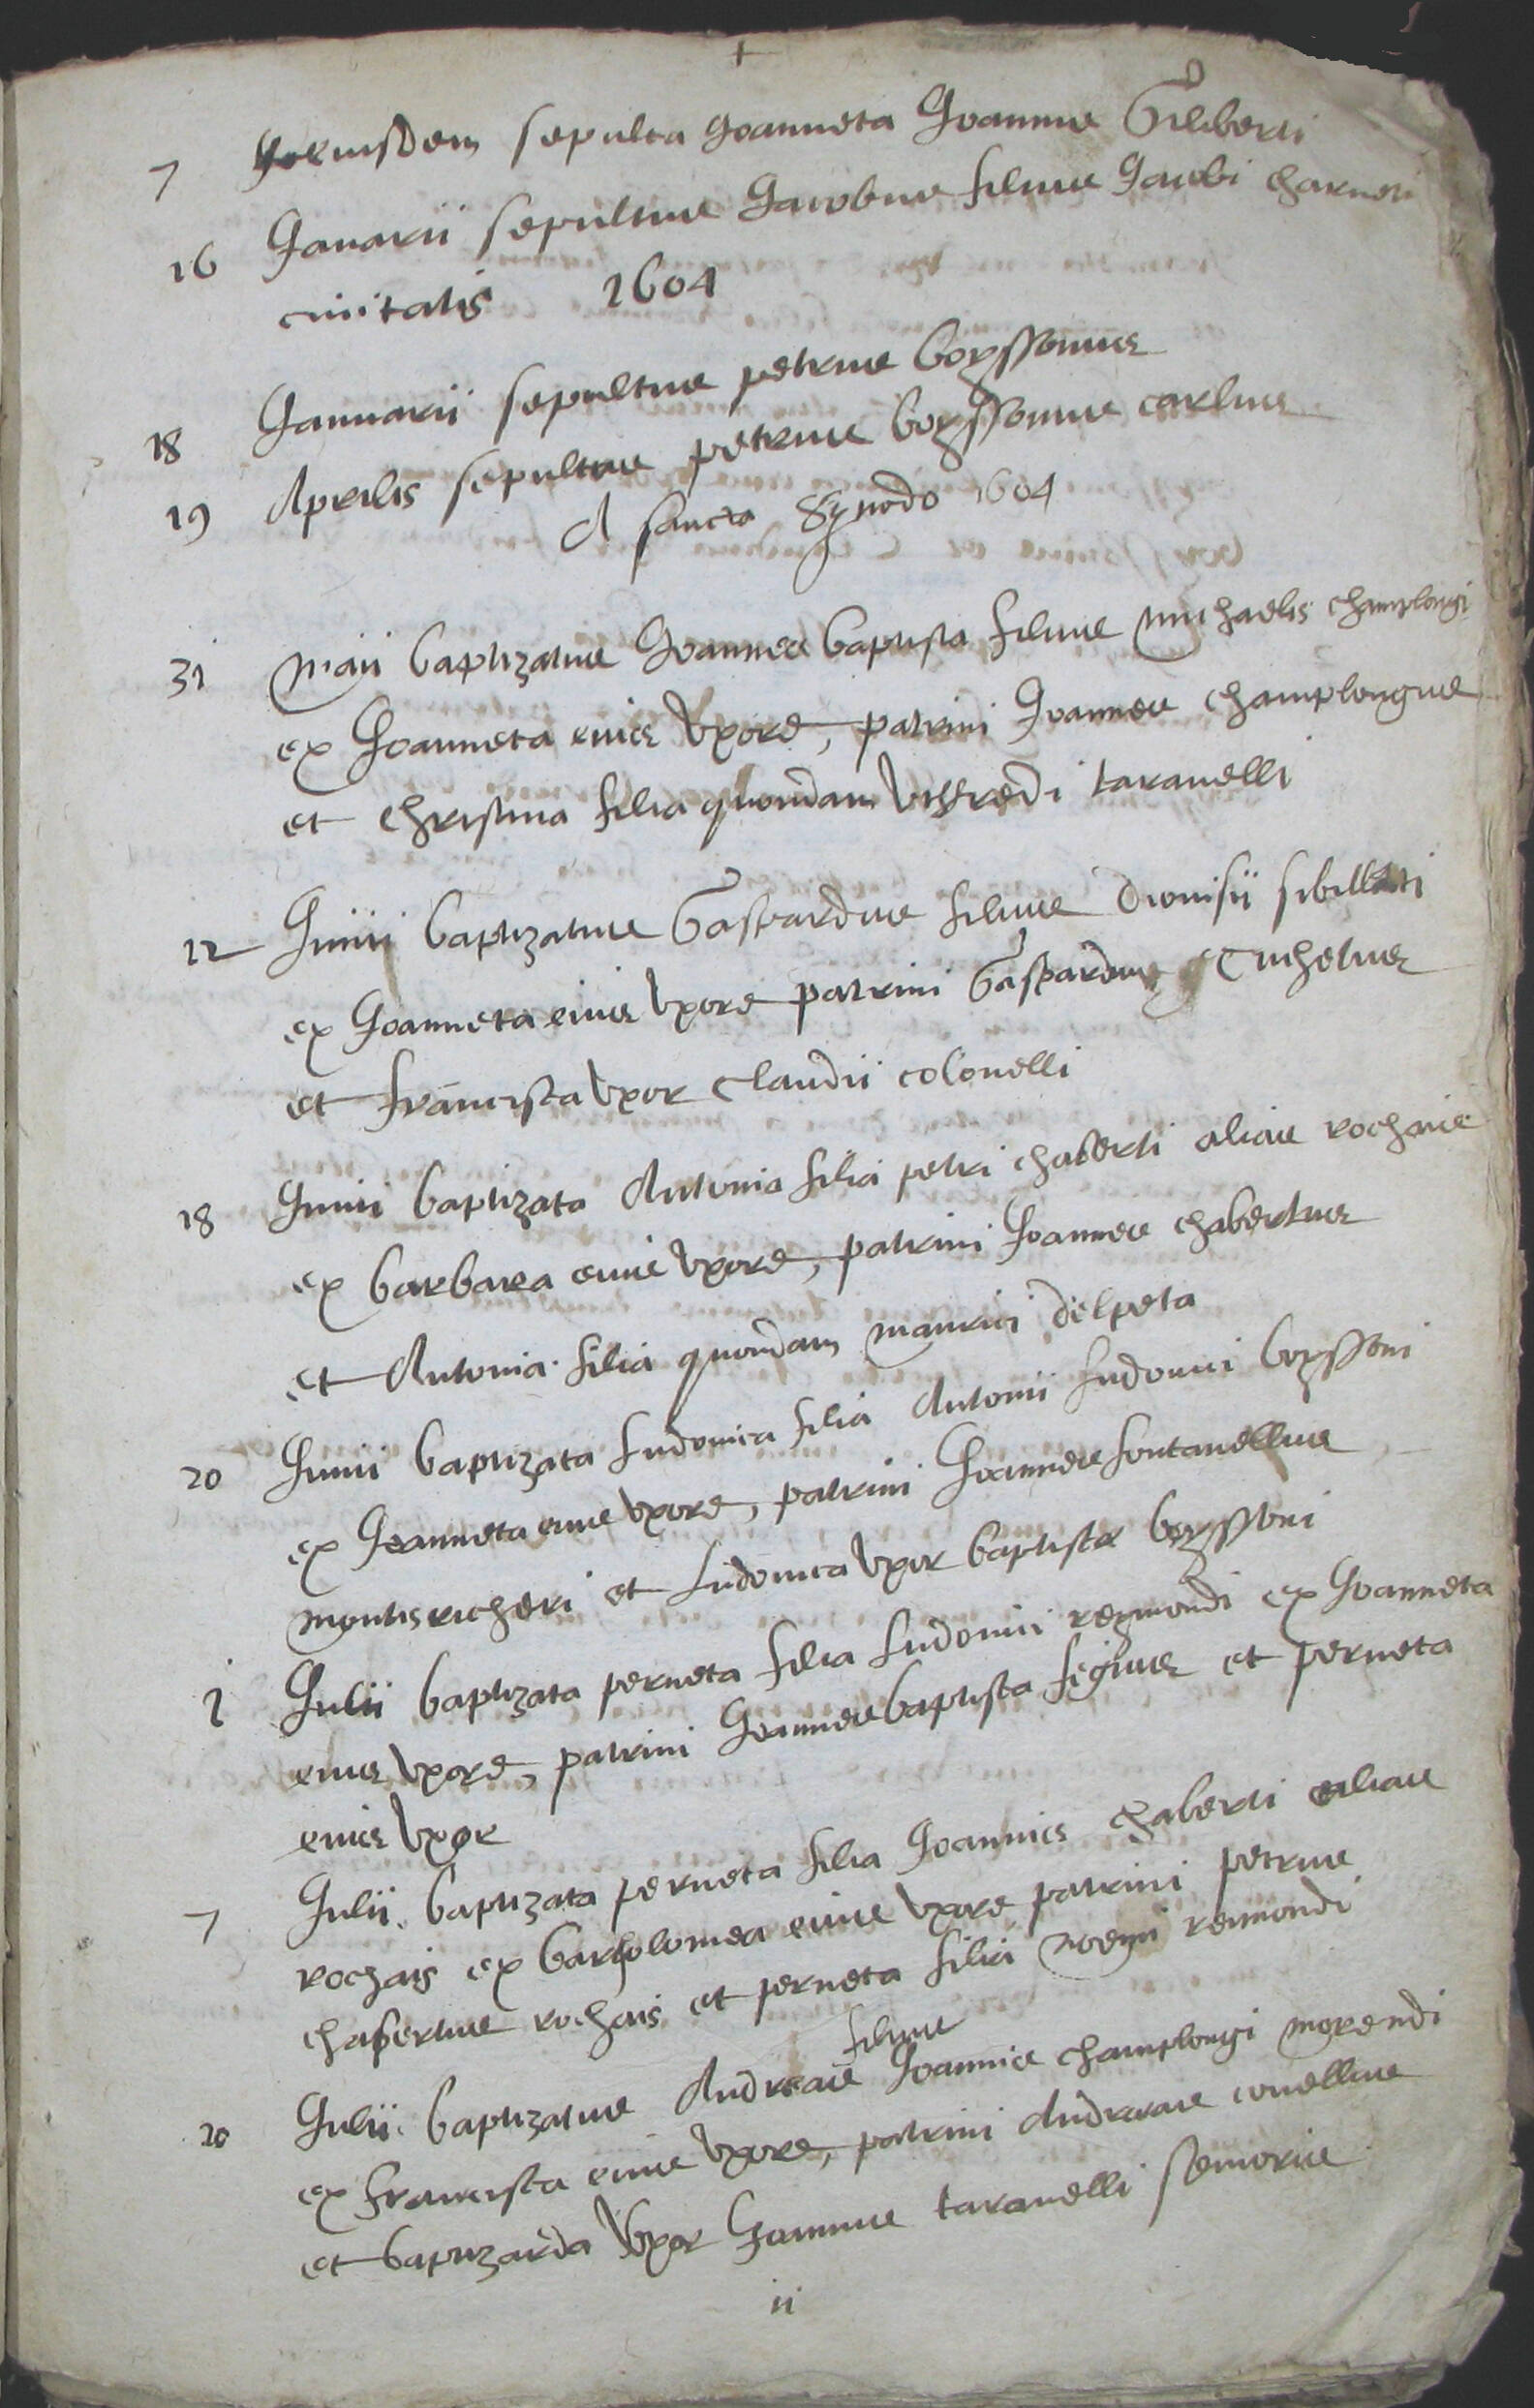 +
7 eiusdem sepulta Joanneta Joannis Giliberti
16 Januarii sepultus Jacobus filius Jacobi charneti
civitatis 1604
18 Januarii sepultus petrus boyssonus
19 Aprilis sepultus petrus boyssonus carlus
A sancta Synodo 1604
31 maii baptizatus Joannes baptista filius michaelis champlongi
ex Joanneta eius uxore, patrini Joannes champlongus
et christina filia quondam Vifredi taravelli
12 Junii baptizatus Gaspardus filius Dionisii sibillati
ex Joanneta eius uxore patrini Gaspardus
et francisca uxor Claudii colonelli
18 Junii baptizata Antonia filia petri chaberti alias rochais
ex barbara eius uxore, patrini Joannes chabertus
et Antonia filia quondam maurici delpeta
20 Junii baptizata Ludovica filia Antonii Ludovici boyssoni
ex Joanneta eius uxore, patrini Joannes fontanellus
montisricheri et Ludovica uxor baptistae boyssoni
i Julii baptizata perneta filia Ludovici reymondi ex Joanneta
eius uxore, patrini Joannes baptista et perneta
eius uxor
7 Julii baptizata perneta filia Joannis chaberti alias
rochais ex bartholomea eius uxore patrini petrus
chabertus rochais et perneta filia noemi reimondi
filius
20 Julii baptizatus Andreas Joannis champlongi morendi
ex francisca eius uxore, patrini Andreas conellus
et baptizarda uxor Joannis taravelli senioris
ii